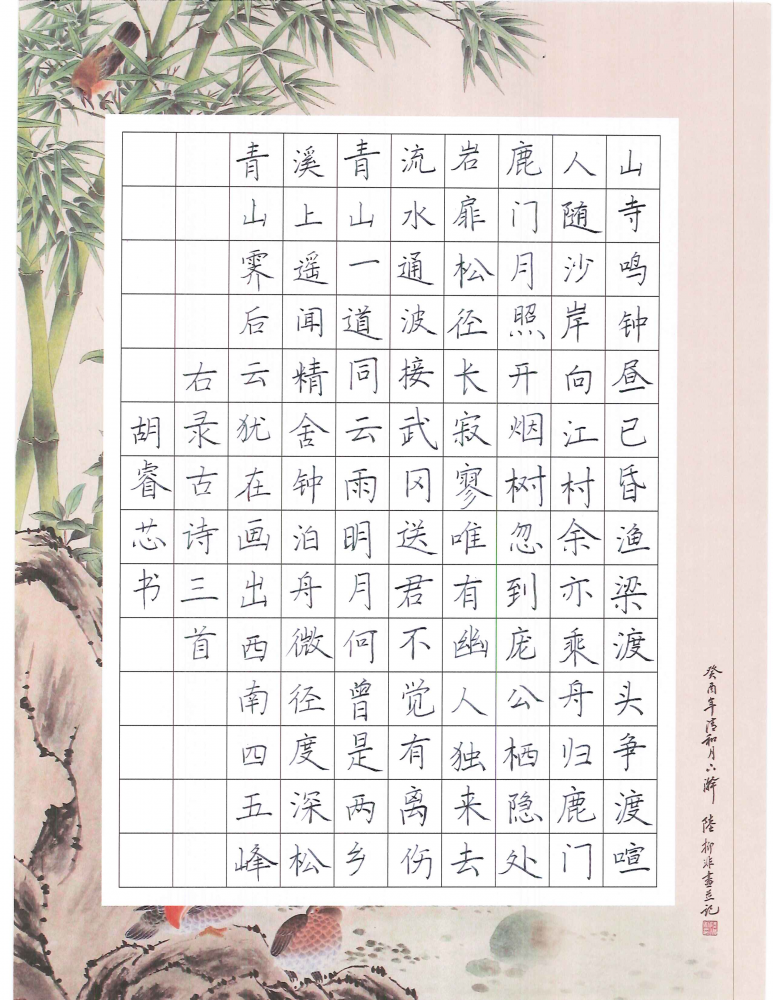 山寺鸣钟昼已昏渔梁渡头争渡喧
人随沙岸向江村余亦乘舟归鹿门
鹿门月照开烟树忽到庞公栖隐处
岩扉松径长寂寥唯有幽人独来去
流水通波接武冈送君不觉有离伤
青山一道同云雨明月何曾是两乡
溪上遥闻精舍钟泊舟微径度深松
青山霁后云犹在画出西南四五峰
右录古诗三首
胡睿芯书